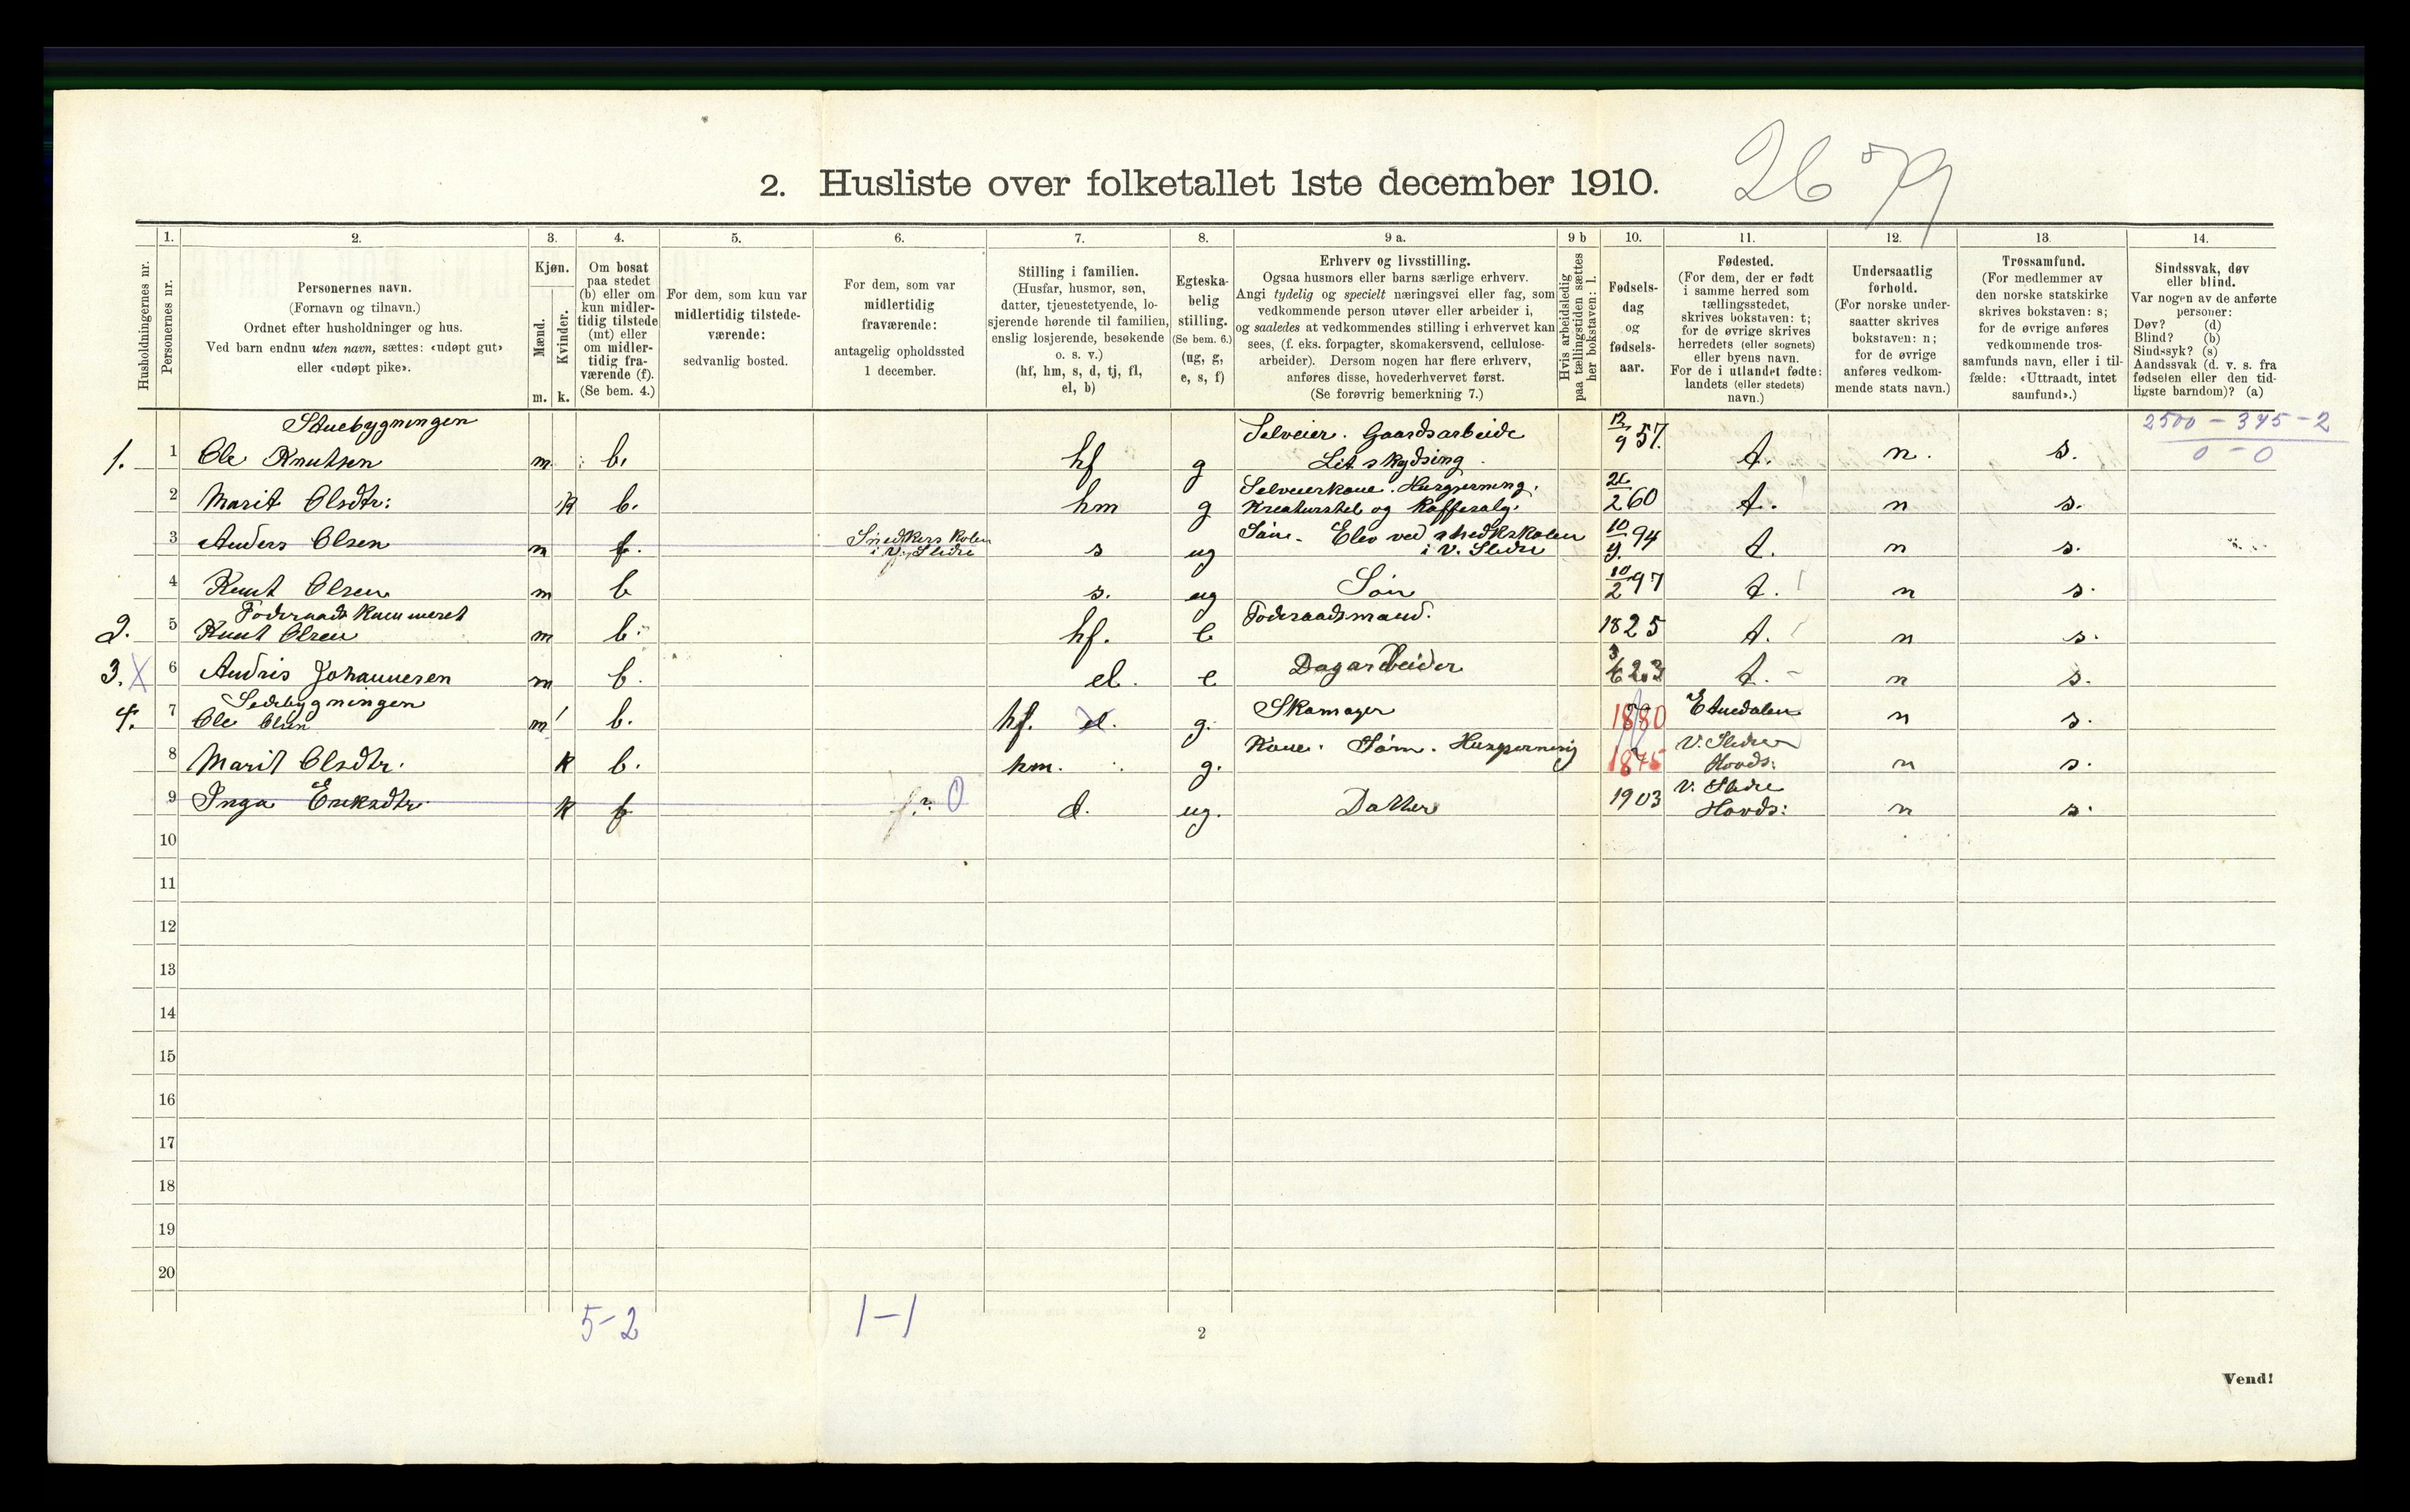 26 79
2. Husliste over folketallet 1ste december 1910.
Husholdningernes nr.
1.
Personernes nr.
2.
Personernes navn.
(Fornavn og tilnavn.)
Ordnet efter husholdninger og hus.
Ved barn endnu uten navn, sættes: «udøpt gut»
eller «udøpt pike».
3.
Kjøn.
Mænd.
Kvinder.
m. k.
4.
Om bosat
paa stedet
(b) eller om
kun midler-
tidig tilstede
(mt) eller
om midler-
tidig fra-
værende (f).
(Se bem. 4.)
5.
For dem, som kun var
midlertidig tilstede-
værende:
sedvanlig bosted.
6.
For dem, som var
midlertidig
fraværende:
antagelig opholdssted
1 december.
7.
Stilling i familien.
(Husfar, husmor, søn,
datter, tjenestetyende, lo-
sjerende hørende til familien,
enslig losjerende, besøkende
o. s. v.)
(hf, hm, s, d, tj, fl,
el, b)
8.
Egteska-
belig
stilling.
(Se bem. 6.)
(ug, g,
e, s, f)
9 a.
Erhverv og livsstilling.
Ogsaa husmors eller barns særlige erhverv.
Angi tydelig og specielt næringsvei eller fag, som
vedkommende person utøver eller arbeider i,
og saaledes at vedkommendes stilling i erhvervet kan
sees, (f. eks. forpagter, skomakersvend, cellulose-
arbeider). Dersom nogen har flere erhverv,
anføres disse, hovederhvervet først.
(Se forøvrig bemerkning 7.)
9 b
Hvis arbeidsledig
paa tællingstiden sættes
her bokstaven: l.
10.
Fødsels-
dag
og
fødsels-
aar.
11.
Fødested.
(For dem, der er født
i samme herred som
tællingsstedet,
skrives bokstaven: t;
for de øvrige skrives
herredets (eller sognets)
eller byens navn.
For de i utlandet fødte:
landets (eller stedets)
navn.)
12.
Undersaatlig
forhold.
(For norske under-
saatter skrives
bokstaven: n;
for de øvrige
anføres vedkom-
mende stats navn.)
13
Trossamfund.
(For medlemmer av
den norske statskirke
skrives bokstaven: s;
for de øvrige anføres
vedkommende tros-
samfunds navn, eller i til-
fælde: «Uttraadt, intet
samfund».)
14.
Sindssvak, døv
eller blind.
Var nogen av de anførte
personer:
Døv? (d)
Blind? (b)
Sindssyk? (s)
Aandssvak (d. v. s. fra
fødselen eller den tid-
ligste barndom)? (a)
2500 - 375 - 2
0 - 0
Stuebygningen
1. 1 Ole Knutsen m b. hf g Selveier. Gaardsarbeide
Lit skydsing. 12/9 57. t. n. s.
2 Marit Olsdtr: k b. hm g Selveierkone. Husgjerning.
Kreaturstel og Kaffesalg. 26/2 60 t. n s.
3 Anders Olsen m f. Snedkerskolen
i V. Slidre s ug Søn. Elev ved snedkskolen
i V. Slidre 10/9 94 t. n s.
4 Knut Olsen m b s. ug Søn 10/2 97 t. n s.
Foderaadskammeret
2. 5 Knut Olsen m b. hf. e Foderaadsmand. 1825 t. n s.
3. X 6 Andris Johannesen m b. el. e Dagarbeider t. n s.
Sidebygningen
4. 7 Ole Olsen m b. hf. el. g. Skomager 1880 Etnedalen n s.
8 Marit Olsdtr. k b. hm. g. Kone. Søm. Husgjerning 1875 V. Slidre
Hovds: n s.
9 Inga Eriksdtr k f f: 0 d. ug. Datter 1903 V. Slidre
Hovds: n s.
10
11
12
13
14
15
16
17
18
19
20
5-2 1-1
2
Vend!